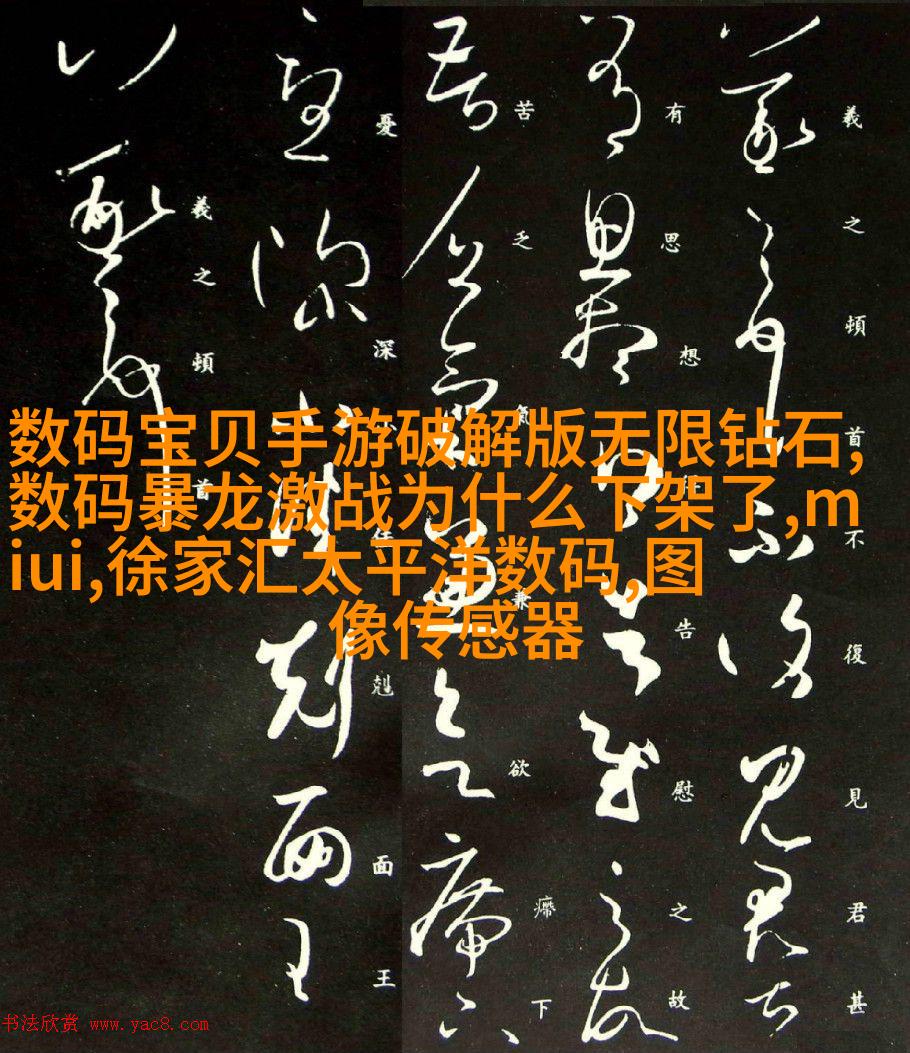 羲之頓首不復見君甚
有思想告慰之故
苦乏氣兼欲㿃下
憂深小佳剋面王
羲之頓首
数码宝贝手游破解版无限钻石,
数码暴龙激战为什么下架了,m
iui,徐家汇太平洋数码,图
像传感器
书法欣赏 www.yac8.com